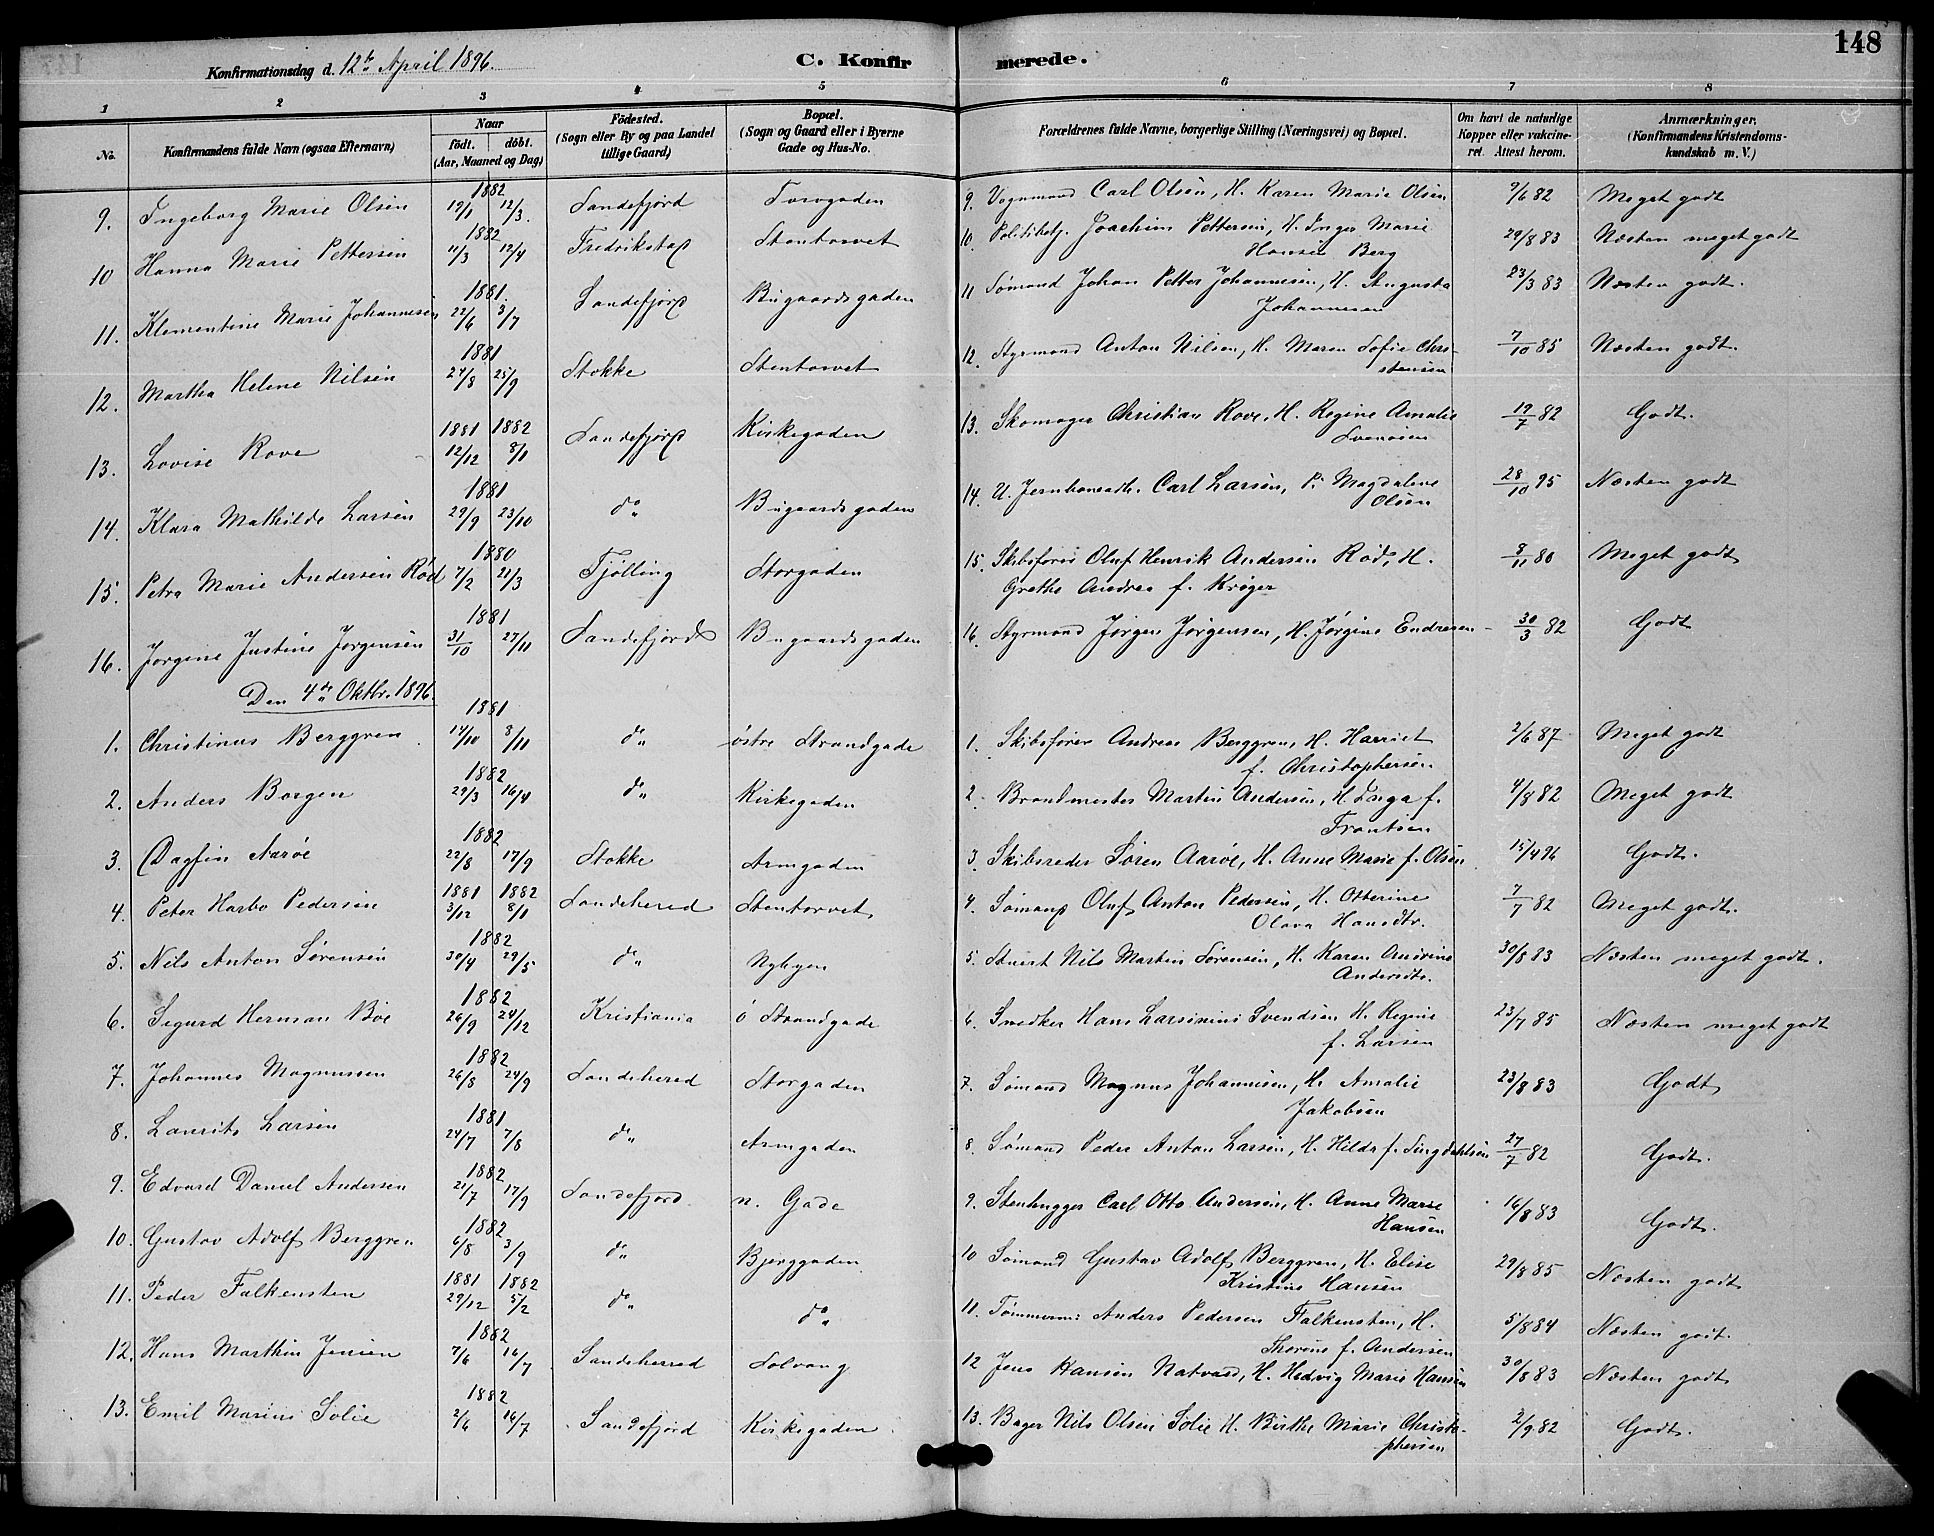 148
Konfirmationsdag d. 12te April 1896.
C. Konfirmerede.
1 2 3 4 5 6 7 8
No. | Konfirmandens fulde Navn (ogsaa Efternavn) | Naar født. døbt. (Aar, Maaned og Dag) | Födested. (Sogn eller By og paa Landet tillige Gaard) | Bopæl. (Sogn og Gaard eller i Byerne Gade og Hus-No. | Forældrenes fulde Navne, borgerlige Stilling (Næringsvei) og Bopæl. | Om havt de naturlige Kopper eller vakcineret. Attest herom. | Anmærkninger. (Konfirmandens Kristendomskundskab m. V.)
9. Ingeborg Marie Olsen | 1882 19/1 12/3. | Sandefjord | Torvgaden | 9. Vognmand Carl Olsen, H. Karen Marie Olsen | 9/6 82 | Meget godt
10 Hanna Marie Pettersen | 1882 11/3 12/4 | Fredrikstad | Stentorvet | 10. Politibetj. Joachim Pettersen, H. Inger Marie Hansen Berg | 29/8 83 | Næsten meget godt
11. Klementine Marie Johannesen | 1881. 22/6 3/7 | Sandefjord | Bugaardsgaden | 11 Sømand Johan Petter Johannesen, H. Augusta Johannesen | 23/3 83 | Næsten godt.
12. Martha Helene Nilsen | 1881 24/8 25/9 | Stokke | Stentorvet | 12. Styrmand Anton Nilsen, H. Maren Sofie Christensen | 7/10 85 | Næsten godt.
13. Lovise Rove | 1881 1882 12/12 8/1 | Sandefjord | Kirkegaden | 13. Skomager Christian Rove, H. Regine Amalie Svensen | 19/7 82 | Godt.
14. Klara Mathilde Larsen | 1881 29/9 23/10 | do | Bugaardsgaden | 14. U. Jernbanearb. Carl Larsen, P. Magdalene Olsen | 28/10 95 | Næsten godt
15. Petra Marie Andersen Rød | 1880 7/2 21/3 | Tjølling | Storgaden | 15. Skibsfører Oluf Henrik Andersen Rød, H. Grethe Andrea f. Krøger | 8/11 80 | Meget godt
16. Jørgine Justine Jørgensen | 1881 31/10 27/11 | Sandefjord | Bugaardsgaden | 16. Styrmand Jørgen Jørgensen, H. Jørgine Endresen | 30/3 82 | Godt
Den 4de Oktbr. 1896.
1. Christinus Berggren | 1881 14/10 8/11 | do | østre Strandgade | 1. Skibsfører Andreas Berggren, H. Harriet f. Christophersen | 2/6 87 | Meget godt
2. Anders Borgen | 1882 29/3 16/4 | do | Kirkegaden | 2. Brandmester Martin Andersen, H. Inga f. Frantsen | 4/8 82 | Meget godt
3. Dagfin Aarøe | 1882 22/8 17/9 | Stokke | Armgaden | 3. Skibsreder Søren Aarøe, H. Anne Marie f. Olsen | 15/4 96 | Godt.
4. Peter Harbo Pedersen | 1881 1882 3/12 8/1 | Sandehered | Stentorvet | 4. Sømand Oluf Anton Pedersen, H. Otterine Olava Hansdtr. | 7/7 82 | Meget godt.
5. Nils Anton Sørensen | 1882 30/4 29/5 | do | Nybyen | 5. Stuert Nils Martin Sørensen, H. Karen Andrine Andersdtr. | 30/8 83 | Næsten meget godt.
6. Sigurd Herman Bøe | 1882 26/9 24/12 | Kristiania | ø Strandgade | 6. Snedker Hans Larsinius Svendsen H. Regine f. Larsen | 23/7 85 | Næsten meget godt
7. Johannes Magnussen | 1882 26/8 24/9 | Sandehered | Storgaden | 7. Sømand Magnus Johannesen, H. Amalie Jakobsen | 23/8 83 | Godt
8. Laurits Larsen | 1881 24/7 7/8 | do | Armgaden | 8. Sømand Peder Anton Larsen, H. Hilda f. Lingdahlsen | 27/7 82 | Godt.
9. Edvard Daniel Andersen | 1882 21/7 17/9 | Sandefjord | n. Gade | 9. Stenhugger Carl Otto Andersen, H. Anne Marie Hansen | 16/8 83 | Godt.
10. Gustav Adolf Berggren | 1882 6/8 3/9 | do | Bjerggaden | 10 Sømand Gustav Adolf Berggren, H. Elise Kristine Hansen | 29/8 85 | Næsten godt
11. Peder Falkensten | 1881 1882 29/12 5/2 | do | do | 11. Tømmerm: Anders Pedersen Falkensten, H. Thorine f. Andersen | 5/8 84 | Næsten godt.
12. Hans Marthin Jensen | 1882 7/6 16/7 | Sandeherred | Solvang | 12 Jens Hansen Natvald, H. Hedvig Marie Hansen | 30/8 83 | Næsten godt
13. Emil Marius Solie | 1882 2/6 16/7 | Sandefjord | Kirkegaden | 13. Bager Nils Olsen Solie H. Birthe Marie Christophersen | 2/9 82 | Godt.